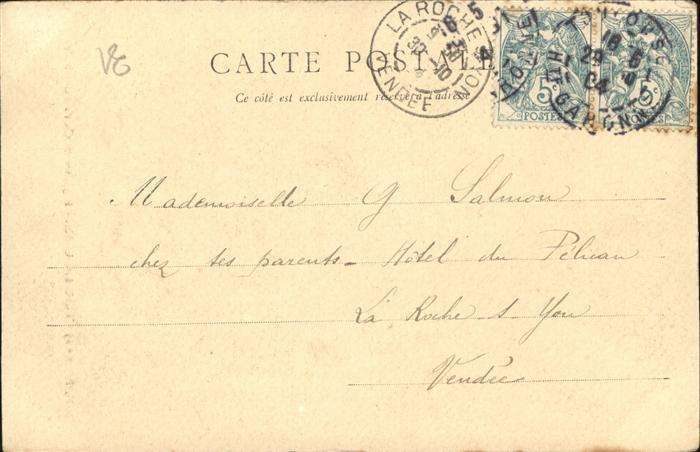 CARTE POSTALE
Ce côté est exclusivement réservé à l'adresse
LA ROCHE S YON
VENDÉE
5
POSTES
Mademoiselle G Salmon
chez ses parents - Hôtel du Pélican
La Roche s Yon
Vendée